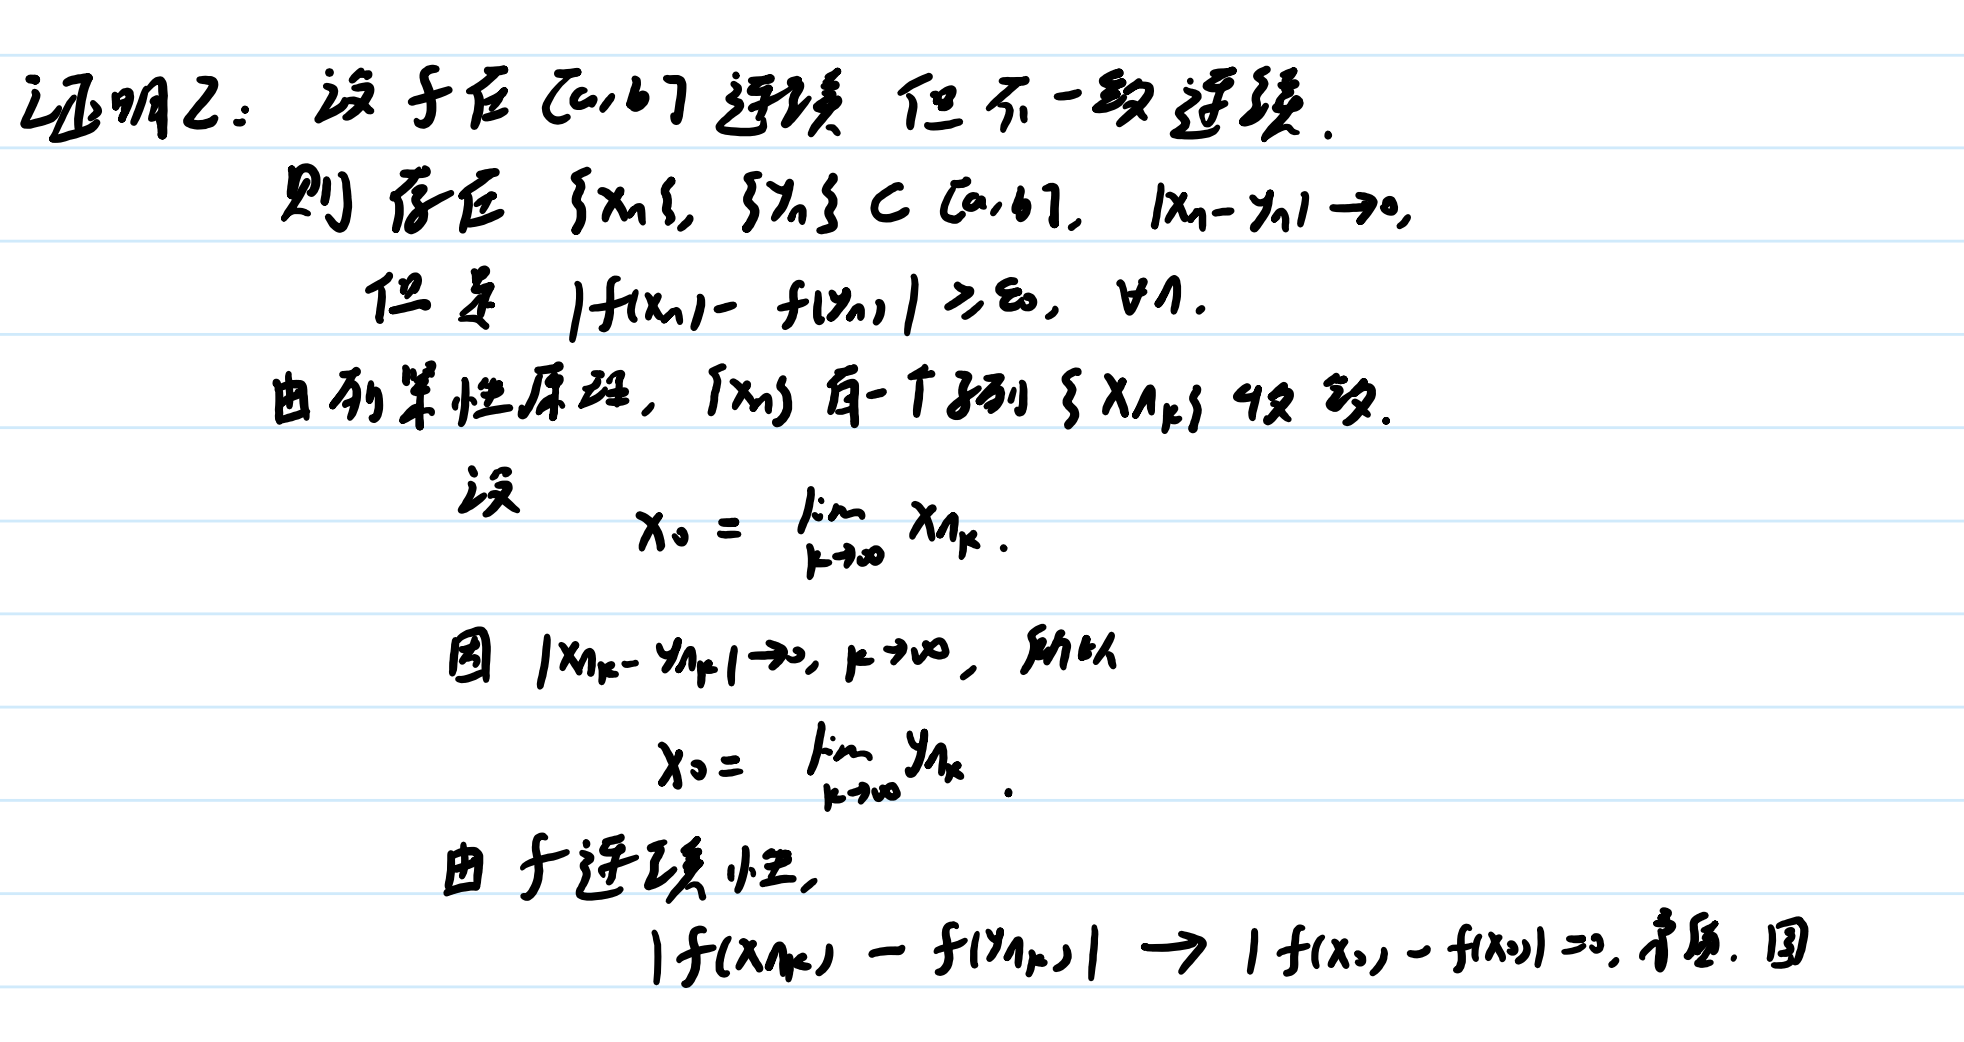 证明2: 设 f 在 [a,b] 连续 但不一致连续.
则存在 {xₙ}, {yₙ} ⊂ [a,b], |xₙ - yₙ| → 0,
但是 |f(xₙ) - f(yₙ)| ≥ ε₀, ∀n.
由列紧性原理, {xₙ} 有一个子列 {x_{n_k}} 收敛.
设 x₀ = lim_{k→∞} x_{n_k}.
因 |x_{n_k} - y_{n_k}| → 0, k → ∞, 所以
x₀ = lim_{k→∞} y_{n_k}.
由 f 连续性,
|f(x_{n_k}) - f(y_{n_k})| → |f(x₀) - f(x₀)| = 0, 矛盾.